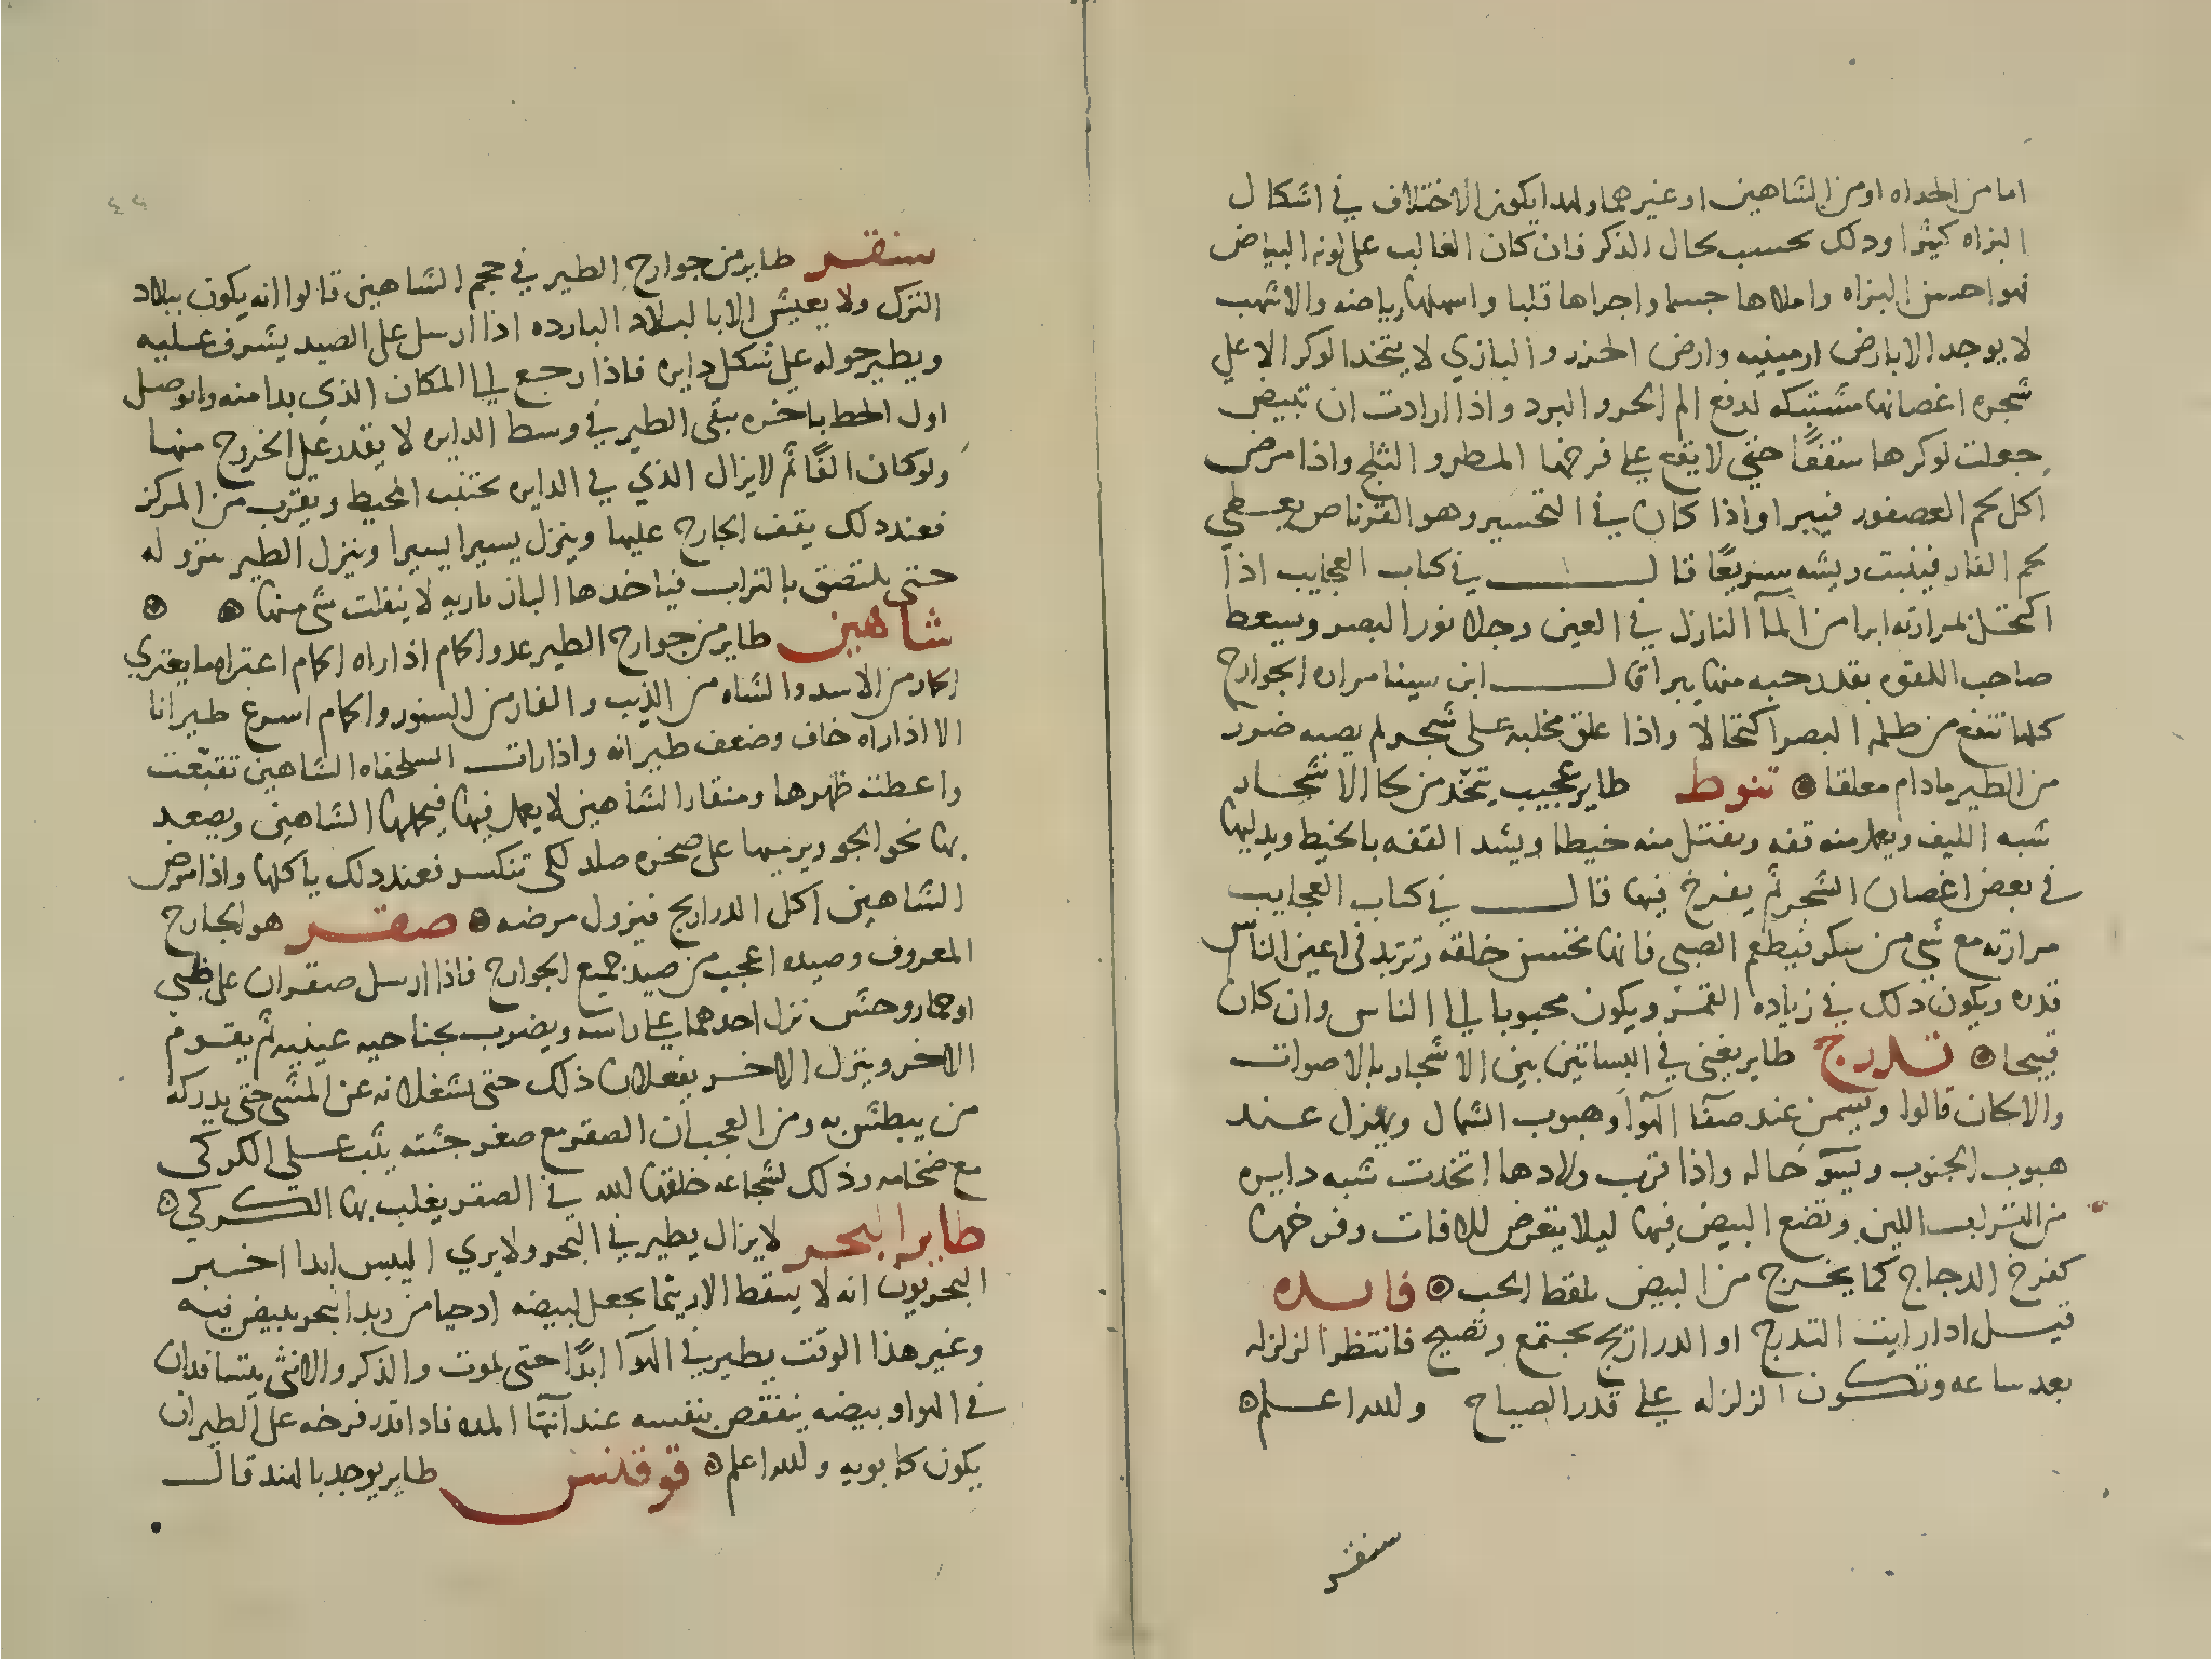 اما من الحداه او من الشاهين او غيرهما ولهدا يكون الاختلاف في اشكال
البزاه كثيرا ودلك بحسب بحال الذكر فان كان الغالب على لونه البياض
فهو احسن البزاه واملاها جسما واجراها قلبا واسهلها رياضه والاشهب
لا يوجد الا بارض ارمينيه وارض الخزر والبازي لا يتخد الوكر الا علي
شجره اغصانها مشتبكه لدفع الم الحر والبرد واذا ارادت ان تبيض
جعلت لوكرها سقفًا حتي لا يقع علي فرخها المطر والثلج واذا مرض
اكل لحم العصفور فيبرا واذا كان في التحسير وهو القرناص يعطي
لحم الفار فينبت ريشه سريعًا قال في كتاب العجايب اذا
اكتحل بمرارته ابرا من المآ النازل في العين وجلا نور البصر ويسعط
صاحب اللقوه بقدر حبه منها يبرا قال ابن سينا مراره الجوارح
كلها تنفع من ظلمه البصر اكتحالا واذا علق مخلبه على شجر لم يصبه ضرر
من الطير مادام معلقا تنوط طاير عجيب يتخذ من لحا الاشجار
شبه الليف ويعمل منه قفه ويفتل منه خيطا ويشد القفه بالخيط ويدليها
في بعض اغصان الشجر ثم يفرخ فيها قال في كتاب العجايب
مرارته مع شي من سكر فيطعم الصبي فانها تحسن خلقه وتزيد في اعين الناس
قدره ويكون دلك في زياده القمر ويكون محبوبا الي الناس وان كان
قبيحا تدرج طاير يغني في البساتين بين الاشجار بالاصوات
والالحان قالوا ويسمن عند صفآ الهوآ وهبوب الشمال ويهزل عند
هبوب الجنوب ويسوّ حاله واذا قرب ولادها اتخدت شبه دايره
من التراب اللين وتضع البيض فيها ليلا يتعرض للافات وفرخها
كفرخ الدجاج كما يخرج من البيض يلقط الحب فايده
قيل ادا رايت التدرج او الدراريج يجتمع وتصيح فانتظر الزلزله
بعد ساعه وتكون الزلزله علي قدر الصياح والله اعلم
سنقر
سنقر طاير من جوارح الطير في حجم الشاهين قالوا انه يكون ببلاد
الترك ولا يعيش الا بالبلاد البارده اذا ارسل على الصيد يشرف عليه
ويطير حوله على شكل دايره فاذا رجع الي المكان الذي بدا منه واتوصل
اول الخط باخره يبقى الطير في وسط الدايره لا يقدر على الخروج منها
ولو كان الفًا ثم لا يزال الذي في الدايره يجتنب المحيط ويقترب من المركز
فعند دلك يقف الجارح عليها وينزل يسيرا يسيرا وينزل الطير بنزوله
حتى يلتصق بالتراب فياخدها البازياريه لا ينفلت شي منها
شاهين طاير من جوارح الطير عدو الحمام اذا راه الحمام اعتراه ما يعتري
الحمار من الاسد والشاه من الذيب والفار من السنور والحمام اسرع طيرانا
الا اذا راه خاف وضعف طيرانه واذا رات السلحفاه الشاهين تقبّعت
واعطته ظهرها ومنقار الشاهين لا يعمل فيها فيحملها الشاهين ويصعد
بها نحو الجو ويرميها على صخره صلد لكي تنكسر فعند دلك ياكلها واذا مرض
الشاهين اكل الدراريج فيزول مرضه صقر هو الجارح
المعروف وصيده اعجب من صيد جميع الجوارح فاذا ارسل صقران على ظبي
او حمار وحش نزل احدهما علي راسه ويضرب بجناحيه عينيه ثم يقوم
الاخر وينزل الاخر يفعلان ذلك حتى يشغلانه عن المشي حتى يدركه
من يبطش به ومن العجب ان الصقر مع صغر جثته يثب علي الكركي
مع ضخامه وذلك لشجاعه خلقها الله في الصقر يغلب بها الكركي
طاير البحر لا يزال يطير في البحر ولا يري اليبس ابدا اخبر
البحريون انه لا يسقط الا ريثما يجعل لبيضه ادحيا من زبد البحر يبيض فيه
وغير هذا الوقت يطير في الهوآ ابدًا حتى يموت والذكر والانثى يتسافدان
في الهوا وبيضه ينفقص بنفسه عند انتهآ المده فادا قدر فرخه على الطيران
يكون كابويه والله اعلم قوقنس طاير يوجد بالهند قال